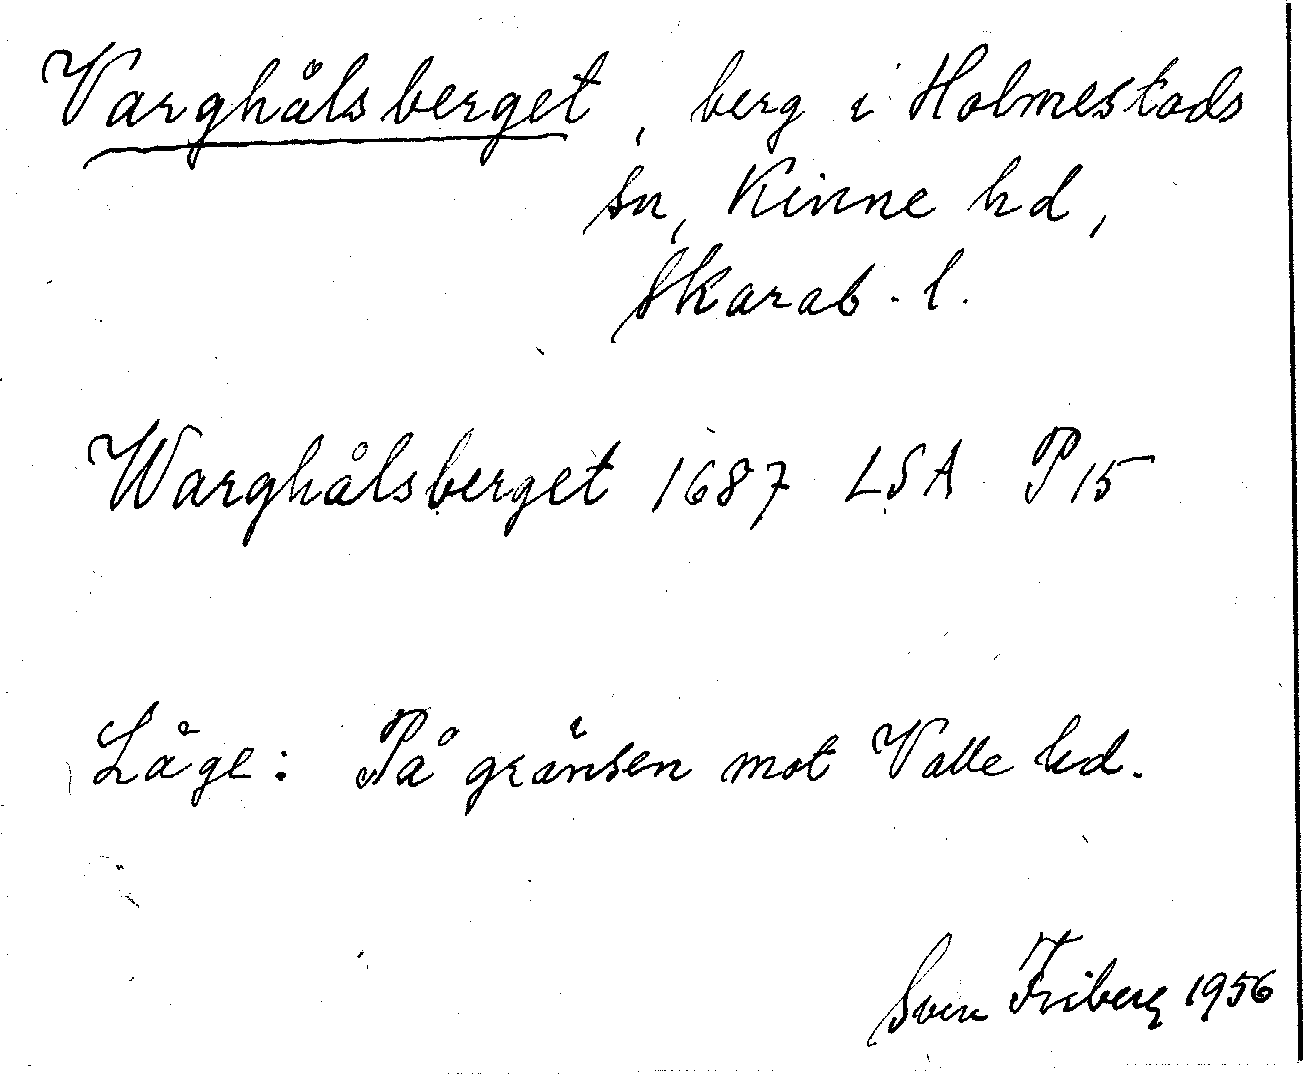 Varghålsberget, berg i Holmestads
sn, Kinne hd,
Skarab. l.
Warghålsberget 1687 LSA P 15
Läge: På gränsen mot Valle hd.
Sven Friberg 1956